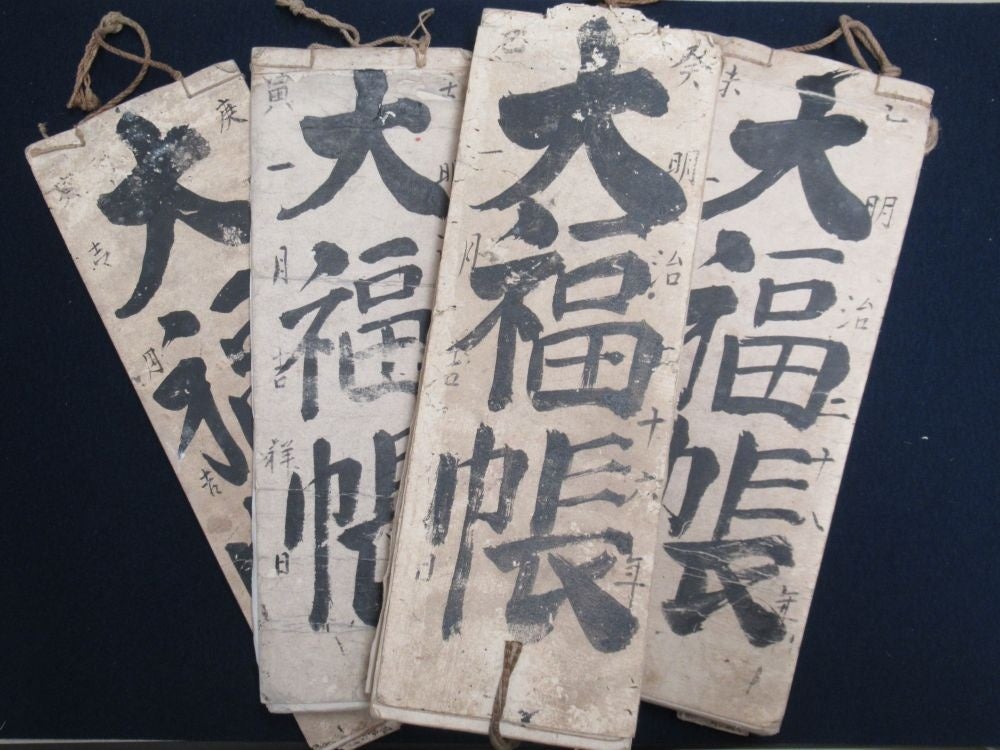 乙 明治二十八年
大福帳
未 一
癸 明治二十六年
大福帳
巳 一月吉日
壬 明
大福帳
寅 一月吉祥日
庚
大福
吉月吉